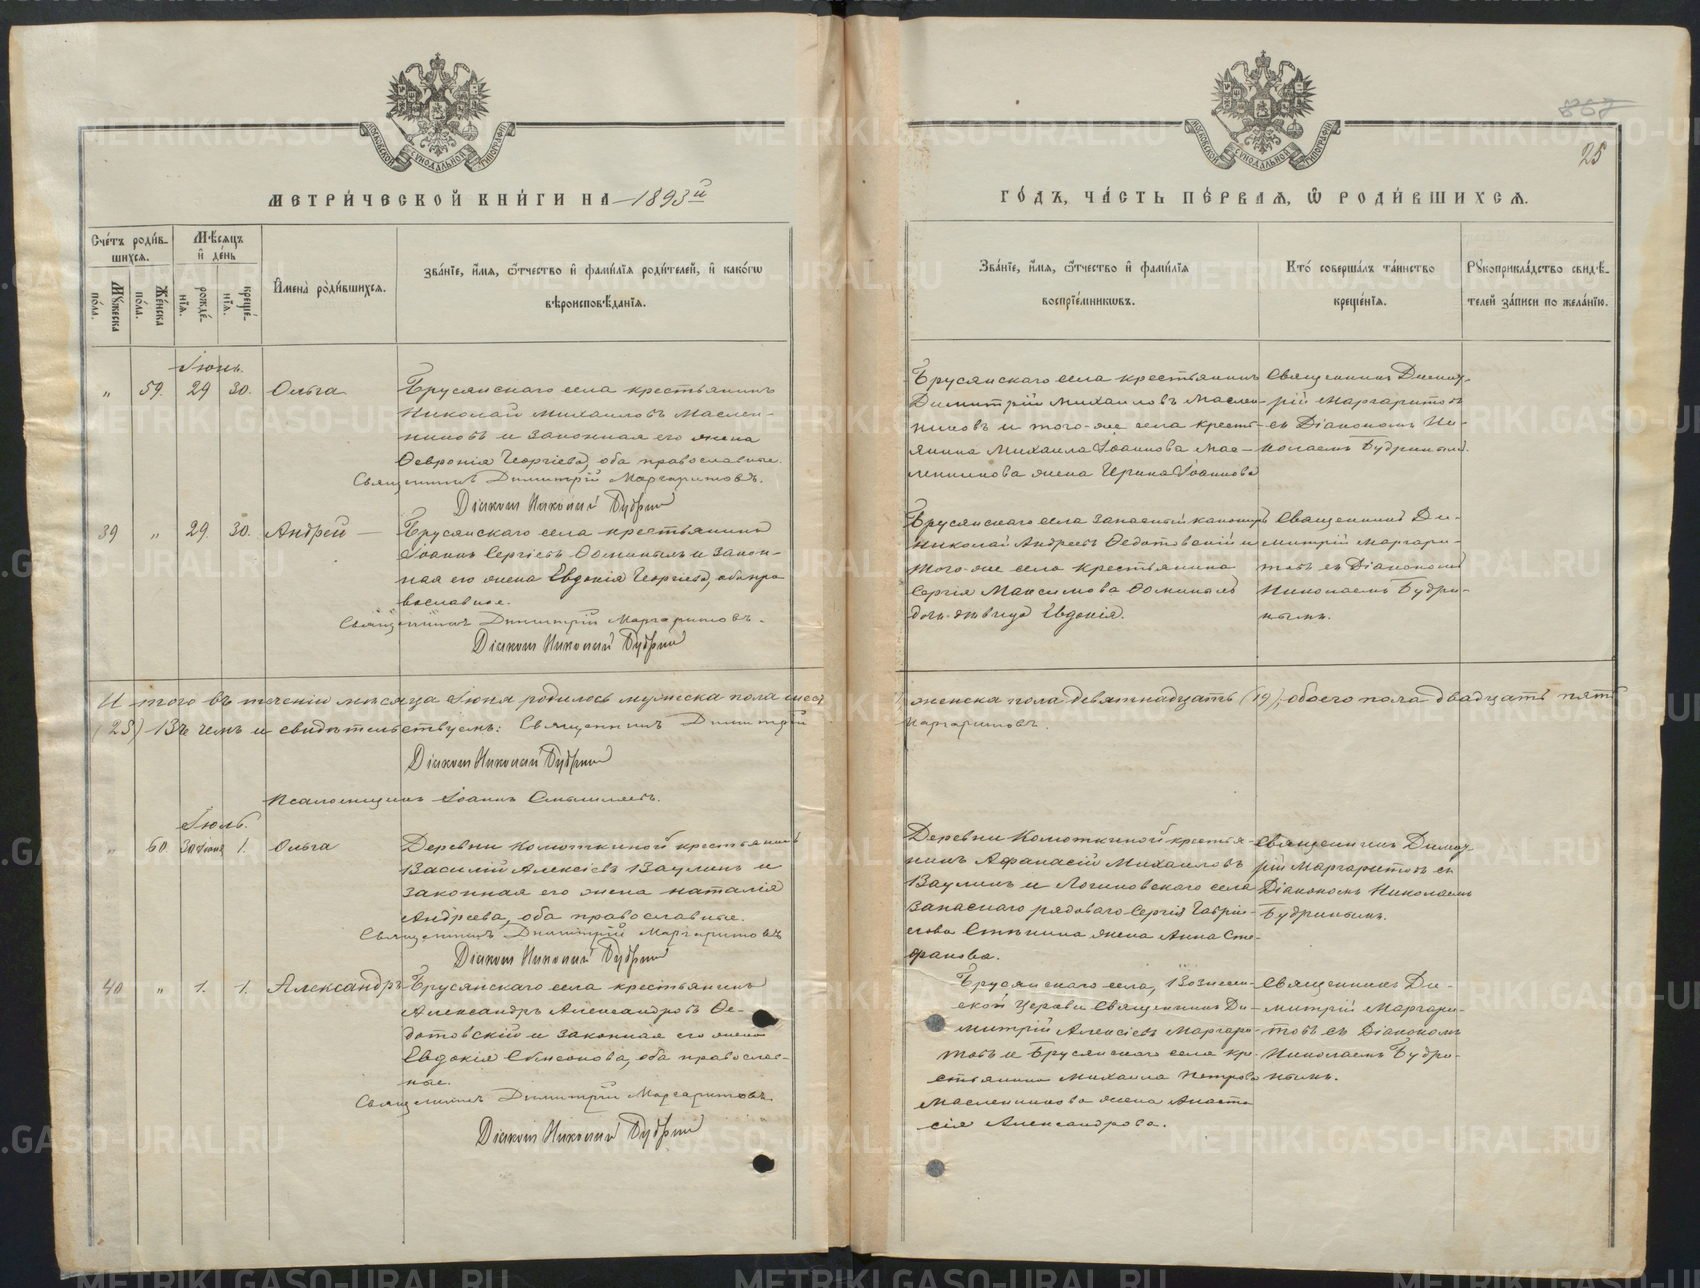 МЕТРИ́ЧЕСКОЙ КНИ́ГИ НА 1893й
Счétъ роди́вшихся.
Му́жеска пола.
Же́нска пола.
Мѣ́сяцъ и де́нь
рожде́нія.
креще́нія.
И́мена роди́вшихся.
Зва́ніе, и́мя, ѻ҆́тчество и фами́лія роди́телей, и како́гѡ
вѣроисповѣ́данія.
Іюнь.
„ 59. 29 30. Ольга
Брусянскаго села крестьянинъ
Николай Михаиловъ Маслен-
никовъ и законная его жена
Феврония Георгіева, оба православные.
Священникъ Димитрій Маргаритовъ.
Діаконъ Николай Будринъ
39 „ 29. 30. Андрей —
Брусянскаго села крестьянинъ
Іоаннъ Сергіевъ Ѳоминыхъ и закон-
ная его жена Евдокія Георгіева, оба пра-
вославные.
Священникъ Димитрій Маргаритовъ.
Діаконъ Николай Будринъ
Итого въ теченіи мѣсяца Іюня родилось мужеска пола шесть
(25) Въ чемъ и свидѣтельствуемъ: Священникъ Димитрій
Діаконъ Николай Будринъ
Псаломщикъ Іоаннъ
Іюль.
„ 60. 30 Іюня 1. Ольга
Деревни Колоткиной крестьянинъ
Василій Алексіевъ Ваулинъ и
законная его жена Наталія
Андреева, оба православные.
Священникъ Димитрій Маргаритовъ
Діаконъ Николай Будринъ
40 „ 1. 1. Александръ
Брусянскаго села крестьянинъ
Александръ Александровъ Ѳе-
дотовскій и законная его жена
Евдокія Сѵмеонова, оба православ-
ные.
Священникъ Димитрій Маргаритовъ
Діаконъ Николай Будринъ
25
ГО́ДЪ, ЧА́СТЬ ПЕ́РВАЯ, Ѡ РОДИ́ВШИХСЯ.
Зва́ніе, и́мя, ѻ҆́тчество и фами́лія
воспріе́мниковъ.
Кто́ соверша́лъ та́инство
креще́нія.
Рукоприкла́дство свидѣ́-
телей за́писи по жела́нію.
Брусянскаго села крестьянинъ
Димитрій Михаиловъ Маслен-
никовъ и того-же села кресть-
янина Михаила Іоаннова Мас-
ленникова жена Ирина Іоаннова
Священникъ Димит-
рій Маргаритовъ
съ Діакономъ Ни-
колаемъ Будринымъ.
Брусянскаго села запасный канониръ
Николай Андреевъ Ѳедотовскій и
того-же села крестьянина
Сергія Максимова Ѳоминыхъ
дочь-дѣвица Евдокія.
Священникъ Ди-
митрій Маргари-
товъ съ Діакономъ
Николаемъ Будри-
нымъ.
женска пола девятнадцать (19), обоего пола двадцать пять
Маргаритовъ.
Деревни Колоткиной крестья-
нинъ Аѳанасій Михаиловъ
Ваулинъ и Логиновскаго села
запаснаго рядоваго Сергія Гаврі-
илова жена Анна Сте-
фанова.
Священникъ Димит-
рій Маргаритовъ съ
Діакономъ Николаемъ
Будринымъ.
Брусянскаго села, Вознесен-
ской Церкви Священникъ Ди-
митрій Алексіевъ Маргари-
товъ и Брусянскаго села кре-
стьянина Михаила Петрова
Масленникова жена Анаста-
сія Александрова.
Священникъ Ди-
митрій Маргари-
товъ съ Діакономъ
Николаемъ Будри-
нымъ.